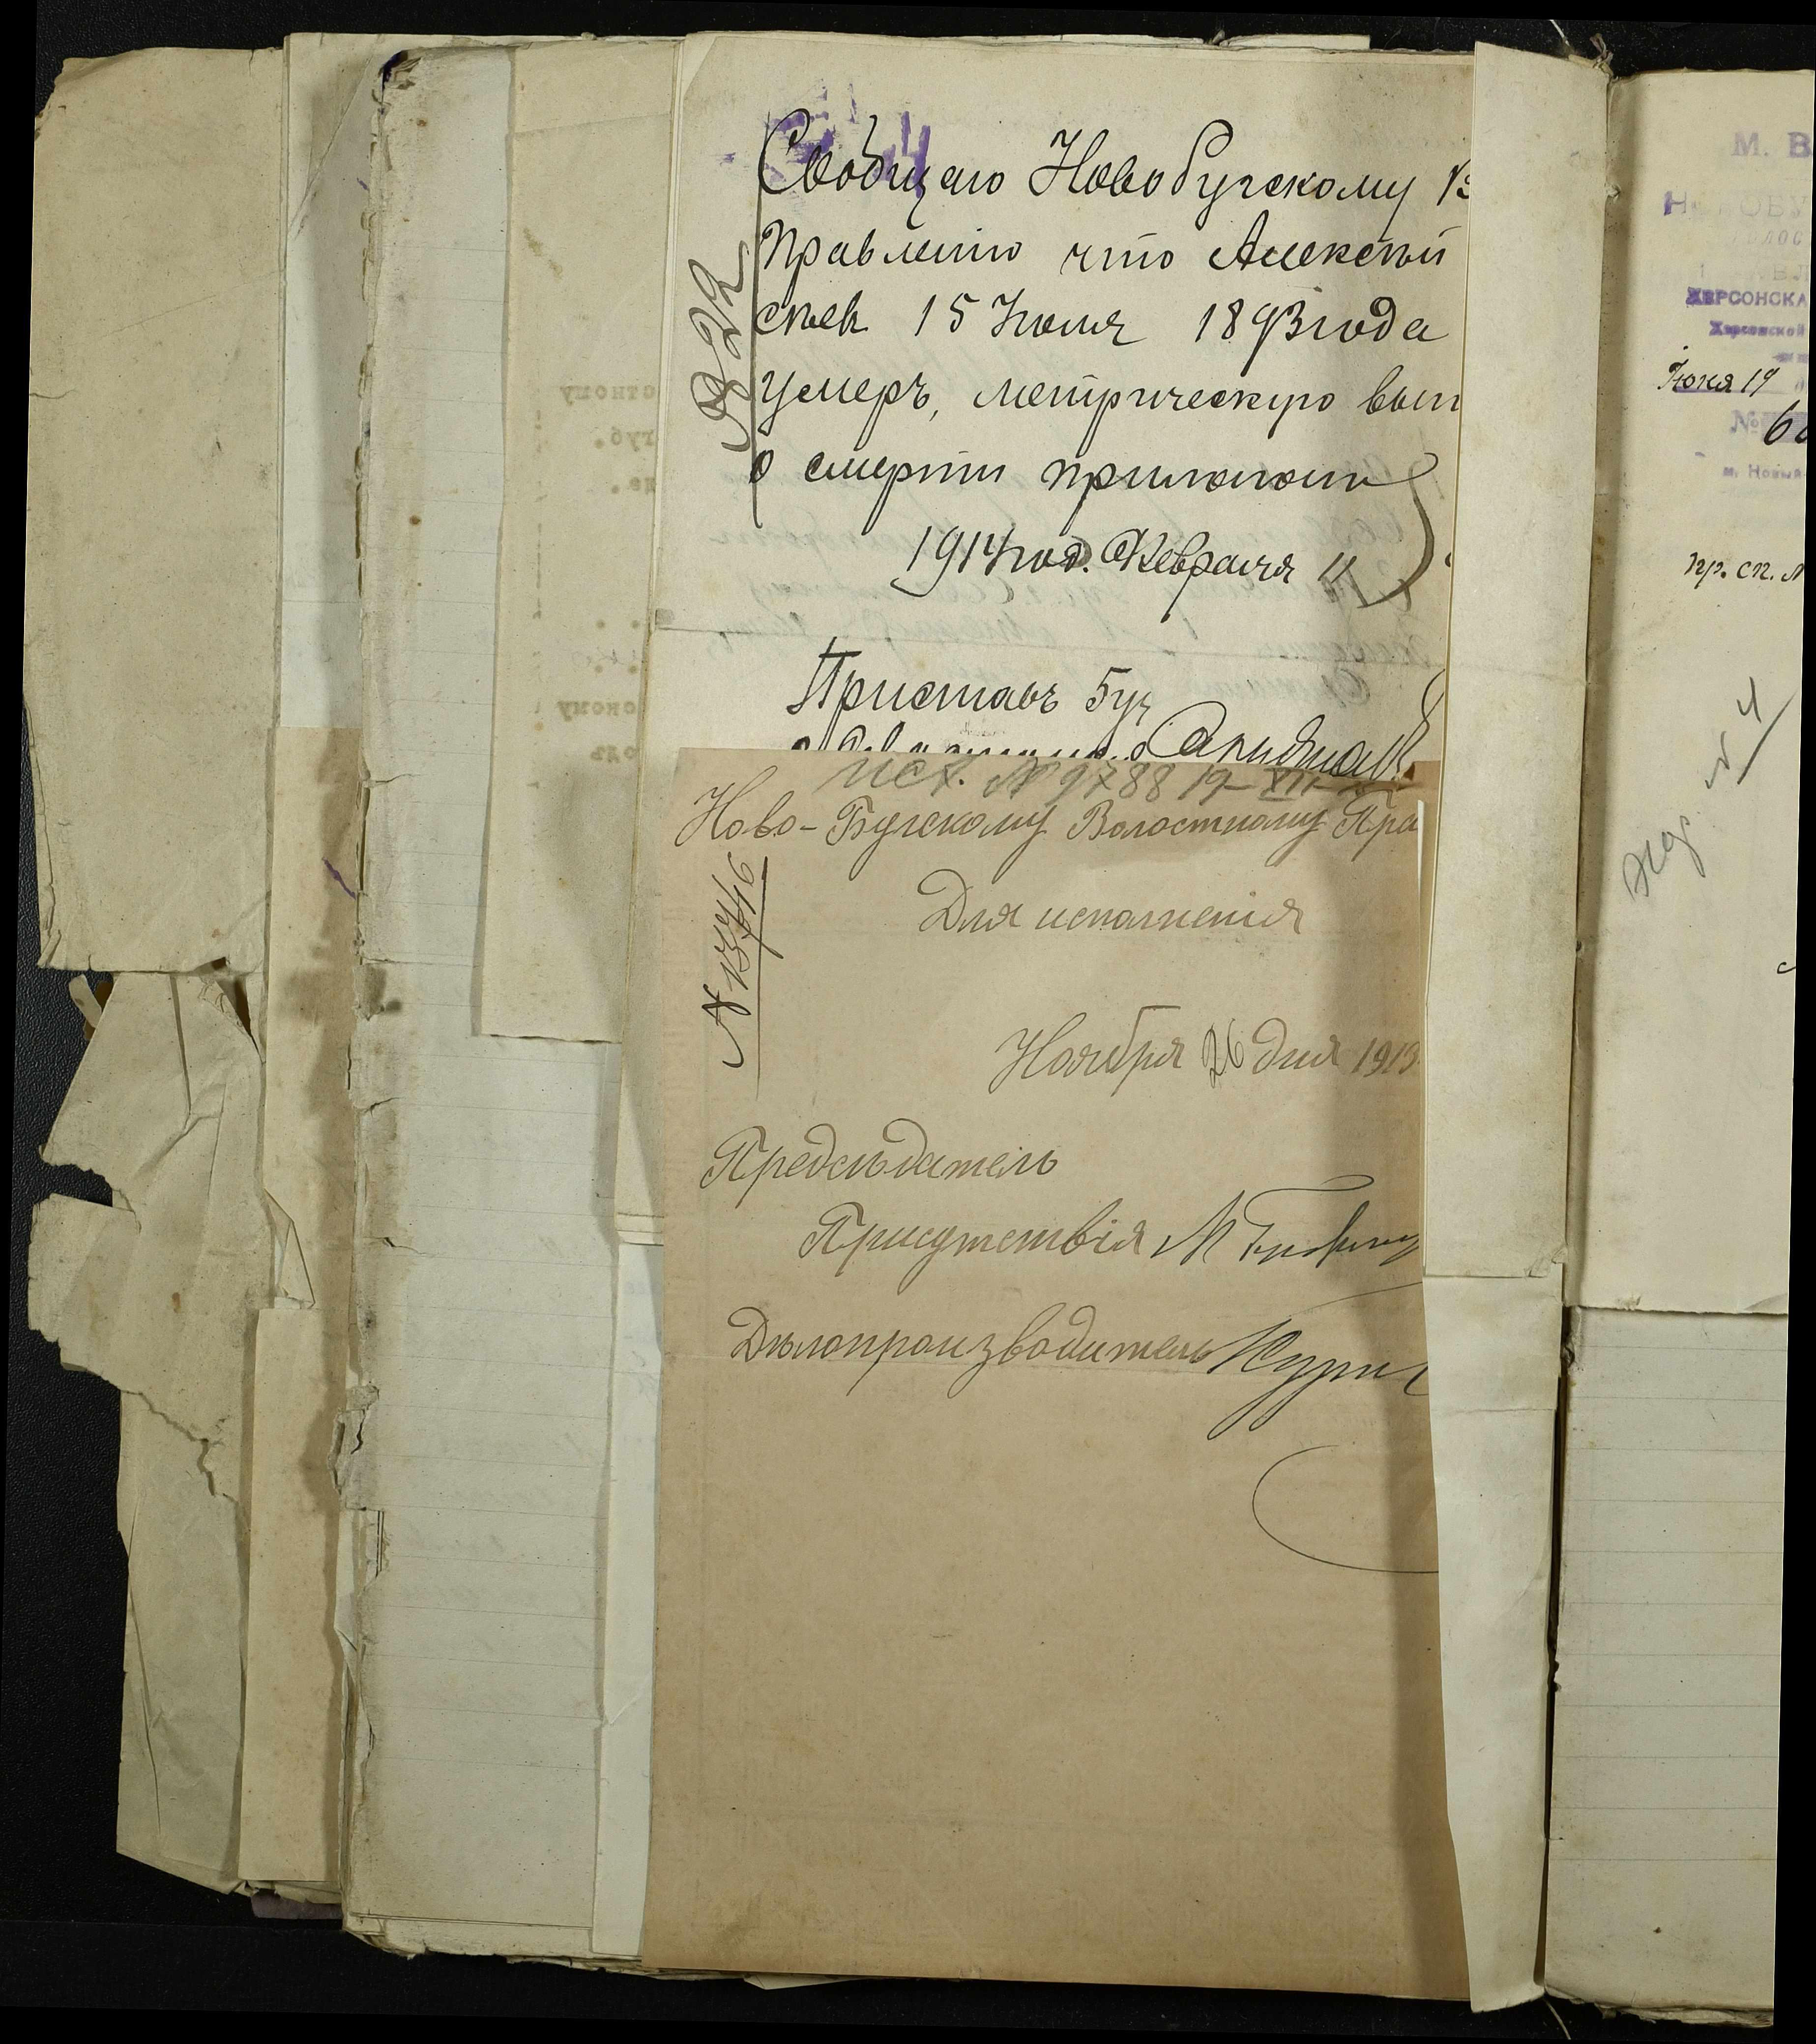 Сообщаю Новобугскому В
Правленію что Алексѣй
сѣев 15 Июля 1893 года
умеръ, метрическую вып
о смерти прилагаю
1914 год. Февраля 11
922
Приставъ
исх. № 9788 19-XII-
Ново-Бугскому Волостному Пра
Для исполненія
№ 13746
Ноября 26 дня 1913
Предсѣдатель
Присутствія
Дѣлопроизводитель
отному
губ.
да.
кому
одъ
М. В
НОВОБУ
ВОЛОС
ХЕРСОНСКА
Херсонской
Июня 19
№ 6
м. Новый
пр. сп. №